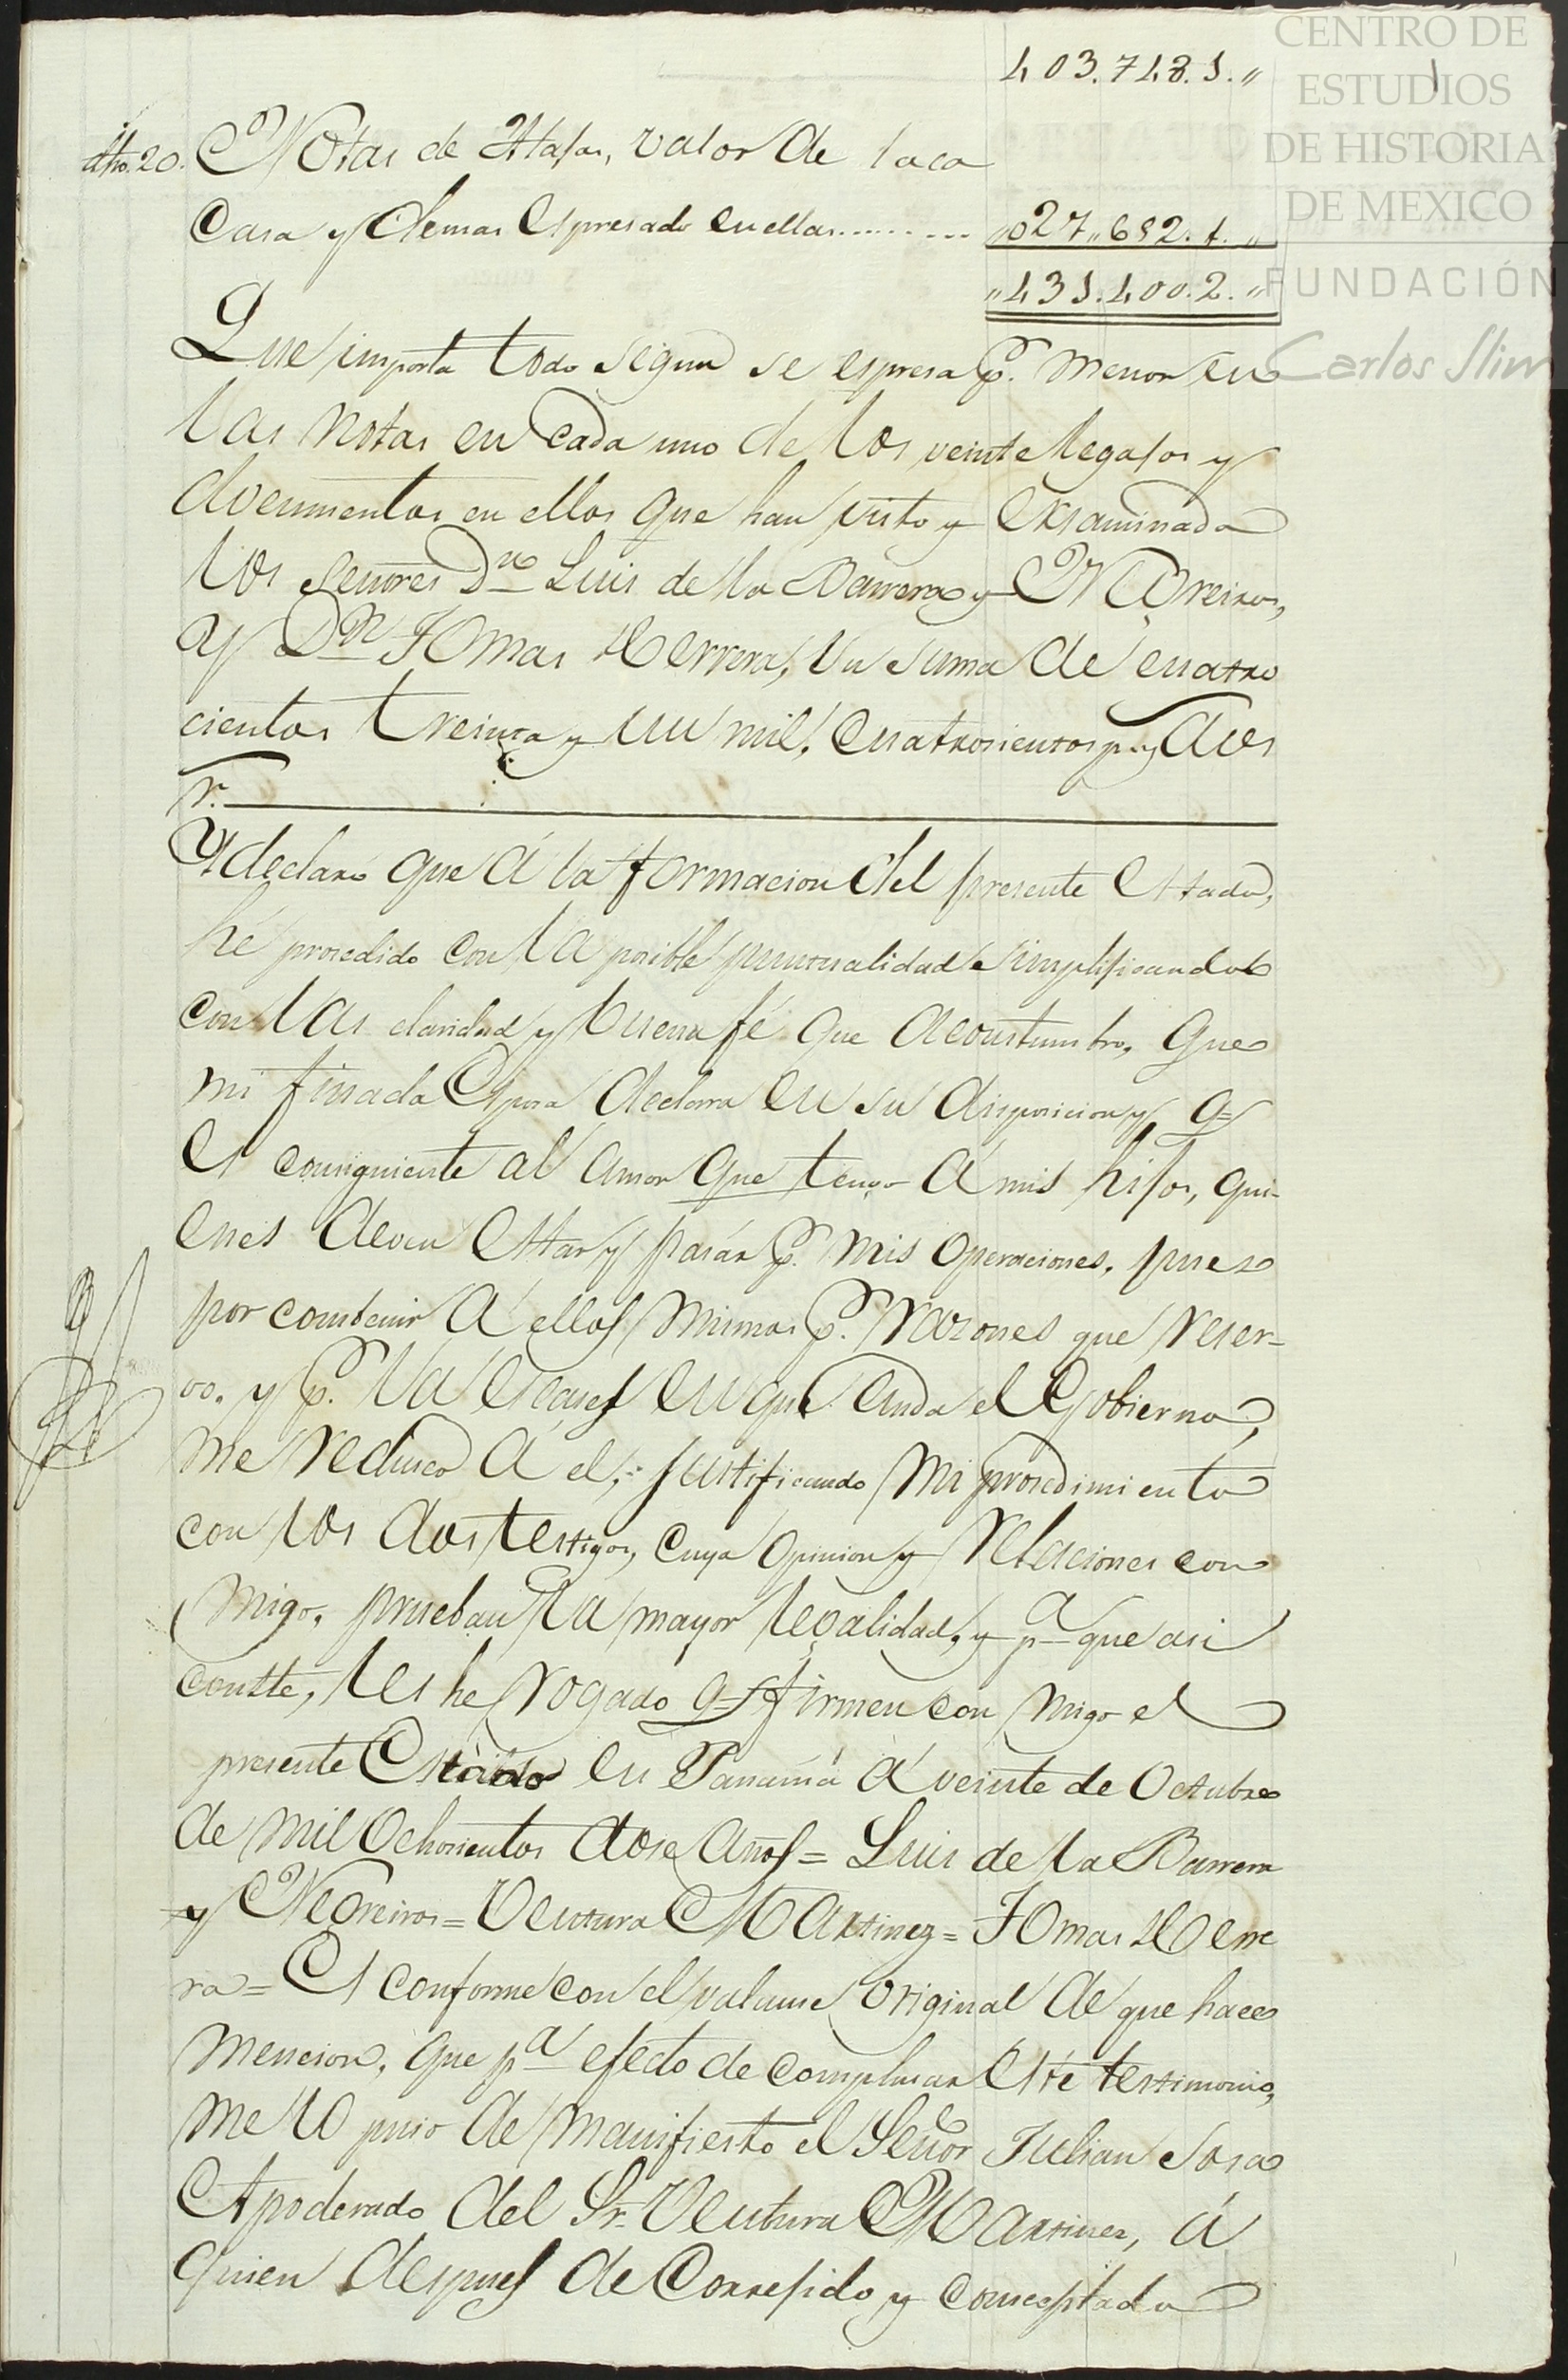 403.748.1.„
CENTRO DE
ESTUDIOS
DE HISTORIA
DE MEXICO
FUNDACIÓN
Carlos Slim
dho. 20. Notas de Alajas, valor de la ca
Casa y demas Espresado en ellas......... „027„652.1.„
„431.400.2.„
Que importa todo segun se espresa p.r menor en
las notas en cada uno de los veinte legajos y
documentos en ellos que han visto y Exsaminado
los señores Dn Luis de la Barrera y Negreiros,
y Dn Tomas Herrera, la suma de cuatro
cientos treinta y un mil, cuatrosientos p.s y dos
r.
Y declaro que á la formacion del presente Estado,
hé prosedido con la posible puntualidad simplificandolo
con las claridad y buena fé que acoustumbro, que
mi finada Esposa declara en su disposicion y q=
Es consiguiente al amor que tengo á mis hijos, qui-
enes deven Estar y pasár p.r mis operaciones, pues
por combenir á ellos mismos p.r razones que reser-
vo, y p.r la Escases en que anda el Gobierno,
me redusco á el; justificando mi prosedimiento
con los dos testigos, cuya opinion y relaciones con
migo, prueban la mayor legalidad, y pa que asi
constte, les he rogado q= firmen con migo el
presente Estado en Panamá á veinte de Octubre
de mil ochosientos dose años = Luis de la Barrera
y Negreiros = Ventura Martinez = Tomas Herre
ra = Es conforme con el valanse original de que hace
mencion, que pa efecto de compulsar Este testimonio,
me lo puso de manifiesto el Señor Julian Sosa
Apoderado del Sr. Ventura Martines, á
quien despues de Correjido y consertado